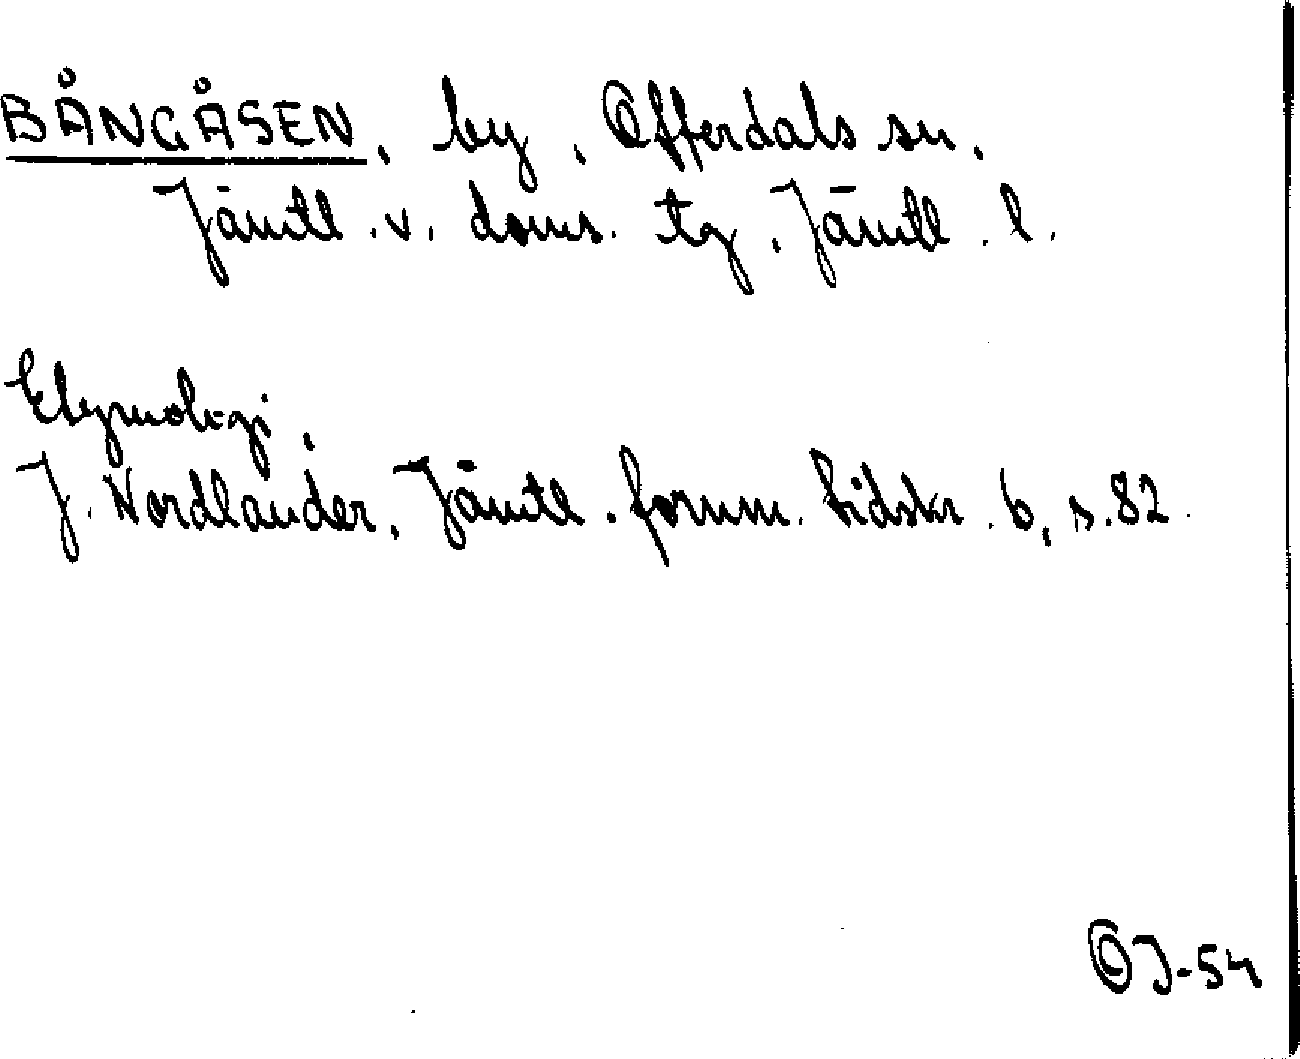 BÅNGÅSEN, by, Offerdals sn,
Jämtl. v. doms. tg, Jämtl. l.
Etymologi,
J. Nordlander, Jämtl. fornm. tidskr. 6, s. 82.
OJ-54